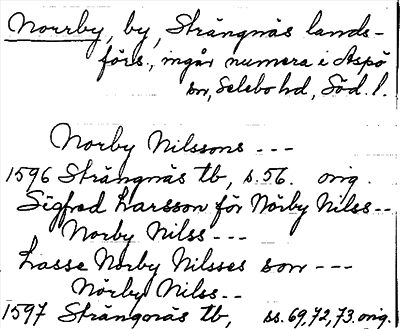 Norrby, by, Strängnäs lands-
förs., ingår numera i Aspö
sn, Selebo hd, Söd. l.
Norby Nilssons ---
1596 Strängnäs tb, s. 56. orig.
Sigfred Larsson för Nörby Nilss--
Norby Nilss ---
Lasse Norby Nilsses son ---
Nörby Nilss--
1597 Strängnäs tb, ss. 69, 72, 73. orig.